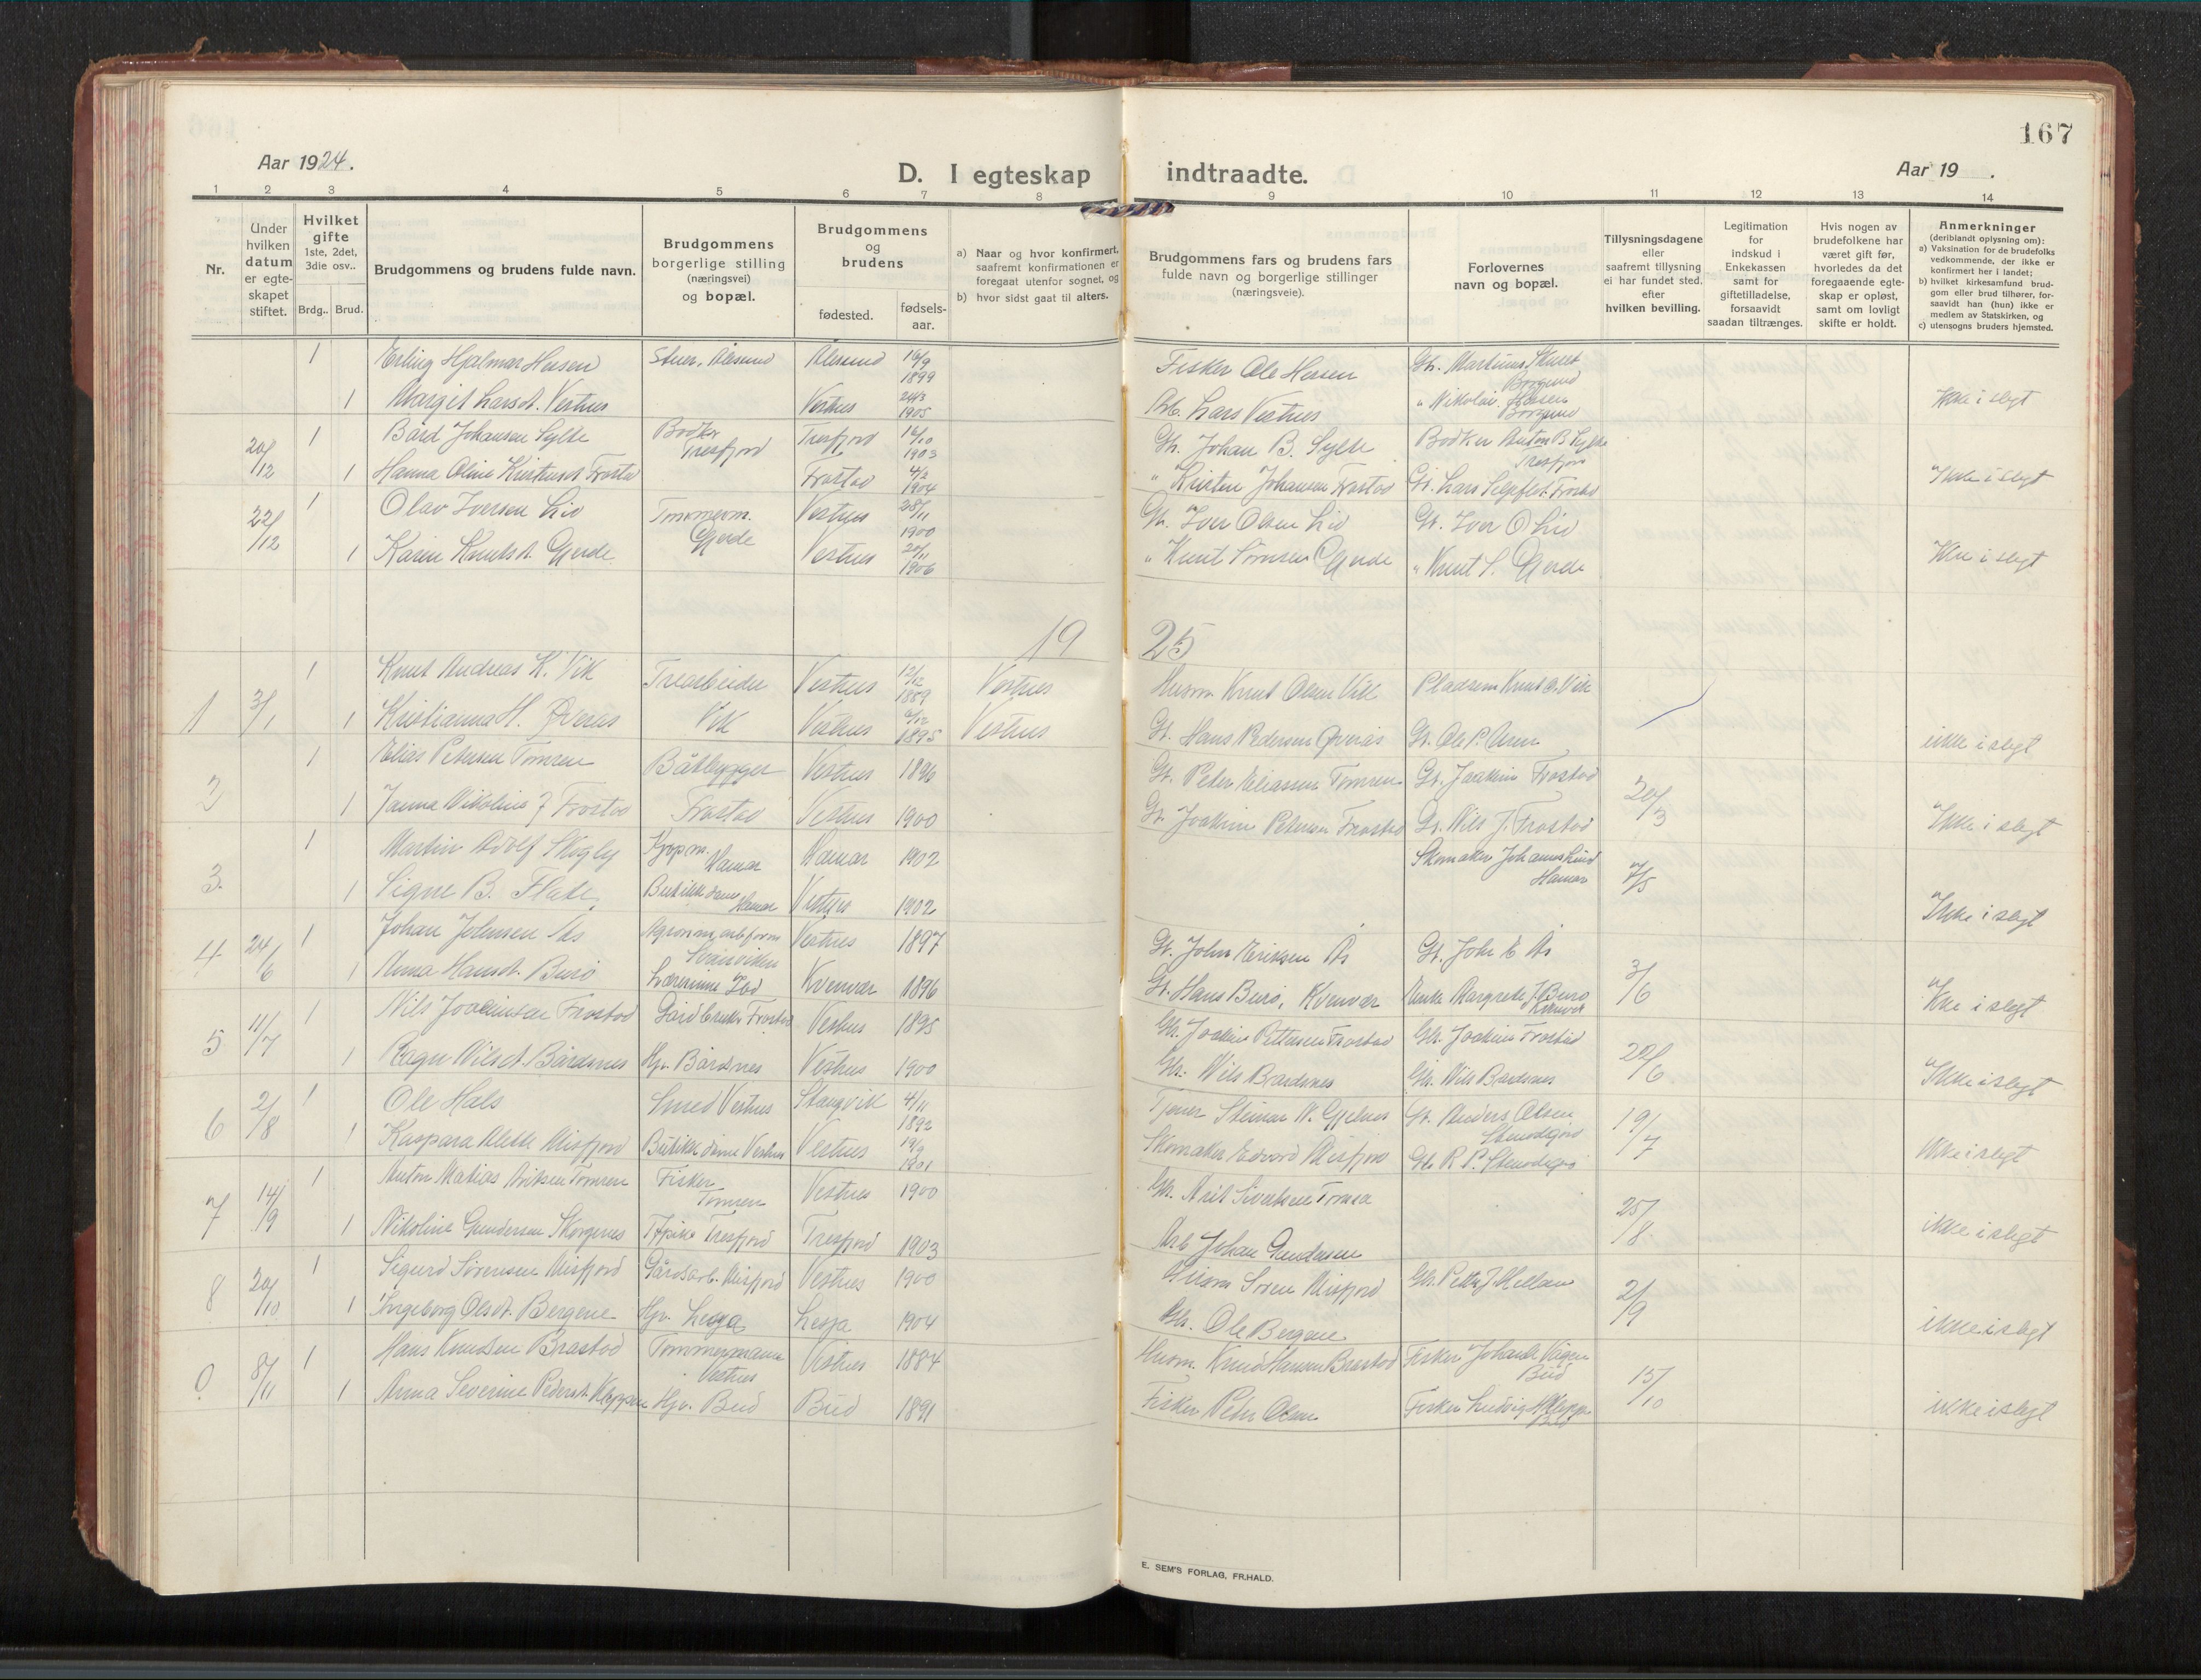 167
Aar 1924.
D. I egteskap indtraadte.
Aar 19 .
1 2 3 4 5 6 7 8 9 10 11 12 13 14
Nr.
Under
hvilken
datum
er egte-
skapet
stiftet.
Hvilket
gifte
1ste, 2det,
3die osv..
Brdg.. Brud.
Brudgommens og brudens fulde navn.
Brudgommens
borgerlige stilling
(næringsvei)
og bopæl.
Brudgommens
og
brudens
fødested.
fødsels-
aar.
a) Naar og hvor konfirmert,
saafremt konfirmationen er
foregaat utenfor sognet, og
b) hvor sidst gaat til alters.
Brudgommens fars og brudens fars
fulde navn og borgerlige stillinger
(næringsveie).
Forlovernes
navn og bopæl.
Tillysningsdagene
eller
saafremt tillysning
ei har fundet sted.
efter
hvilken bevilling.
Legitimation
for
indskud i
Enkekassen
samt for
giftetilladelse,
forsaavidt
saadan tiltrænges.
Hvis nogen av
brudefolkene har
været gift før,
hvorledes da det
foregaaende egte-
skap er opløst,
samt om lovligt
skifte er holdt.
Anmerkninger
(deriblandt oplysning om):
a) Vaksination for de brudefolks
vedkommende, der ikke er
konfirmert her i landet;
b) hvilket kirkesamfund brud-
gom eller brud tilhører, for-
saavidt han (hun) ikke er
medlem av Statskirken, og
c) utensogns bruders hjemsted.
1 Erling Hjalmar Hessen Stuer. Ålesund Ålesund 16/9 1899 Fisker Ole Hessen Gb. Martinus
Borgund
1 Margit Larsdt. Vestnes Vestnes 24/3 1905 Arb. Lars Vestnes " Nikolai Hessen
Borgund Ikke i slegt
20/12 1 Bård Johansen Sylte Bødker
Tresfjord Tresfjord 16/10 1903 Gb. Johan B. Sylte Bødker Anton B Sylte
Tresfjord
1 Hanna Oline Kristensdt Frostad Frostad 4/2 1904 " Kristen Johansen Frostad Gb. Lars Frostad Ikke i slegt
22/12 1 Olav Iversen Lid Tømmerm.
Gjerde Vestnes 28/11 1900 Gb. Iver Olsen Lid Gb. Iver O Lid
1 Karen Knutsdt. Gjerde Vestnes 20/11 1906 " Knut Gjerde " Knut S. Gjerde Ikke i slegt
1925
1 3/1 1 Knut Andreas K. Vik Trearbeider
Vik Vestnes 12/12 1889 Vestnes Husm Knut Olsen Vik Pladsm Knut O. Vik
1 Kristianna H. Øverås Vestnes 6/12 1895 Vestnes Gb. Hans Pedersen Øverås Gb. Ole P. ikke i slegt
2 1 Elias Petersen Tomren Båtbygger
Frostad Vestnes 1896 Gb. Peter Eliassen Tomren Gb. Joakim Frostad 20/3
1 Janna Nikoline J Frostad Vestnes 1900 Gb. Joakim Petersen Frostad Gb. Nils J. Frostad Ikke i slegt
3. 1 Martin Adolf Skogly Kjøpm.
Hamar Hamar 1902 Skomaker Johannes Lund
Hamar 7/5
1 Signe B. Flate Butikkdame
Hamar Vestnes 1902 Ikke i slegt
4 24/6 1 Johan Johnsen Ås Agronom, arbform
Vestnes 1897 Gb. John Eriksen Ås Gb. John E Ås 3/6
1 Anna Hansdt. Burø Lærerinne Kvenvær 1896 Gb. Hans Burø, Kvenvær Enke Margrete J. Burø
Kvenvær Ikke i slegt
5 11/7 1 Nils Joacimsen Frostad Gårdbruker Frostad Vestnes 1895 Gb. Joakim Pettersen Frostad Gb. Joakim Frostad 20/6
1 Ragn Nilsdt. Bårdsnes Hjv. Bårdsnes Vestnes 1900 Gb. Nils Bårdsnes Gb. Nils Bårdsnes Ikke i slegt
6 2/8 1 Ole Hals Smed Vestnes Stangvik 4/11 1892 Tjener Steinar N. Gjelnes Gb. Anders Olsen
19/7
1 Kaspara Alette Misfjord Butikkdame Vestnes Vestnes 19/9 1901 Skomaker Edvard Misfjord Gb. R. P. Ikke i slegt
7 14/9 1 Anton Matias Ariksen Tomren Fisker
Tomren Vestnes 1900 Gb. Arik Sivertsen Tomren 25/8
1 Nikoline Gundersen Skorgenes Tjpike Tresfjord Tresfjord 1903 Arb Johan Gundersen ikke i slegt
8 20/10 1 Sigurd Sørensen Misfjord Gårdsarb. Misfjord Vestnes 1900 Husm Søren Misfjord Gb. Petter J Mellem 2/9
1 Ingeborg Olsdt. Bergene Hjv. Lesja Lesja 1904 Gb. Ole Bergene ikke i slegt
9 8/11 1 Hans Knudsen Brastad Tømmermann
Vestnes Vestnes 1884 Husm. Knud Hansen Brastad Fisker Johan Vågen
Bud 15/10
1 Anna Severine Pedersdt. Kleppen Hjv. Bud Bud 1891 Fisker Peder Olsen Fisker Ludvig Kleppen
Bud ikke i slegt
E. SEM'S FORLAG, FR.HALD.